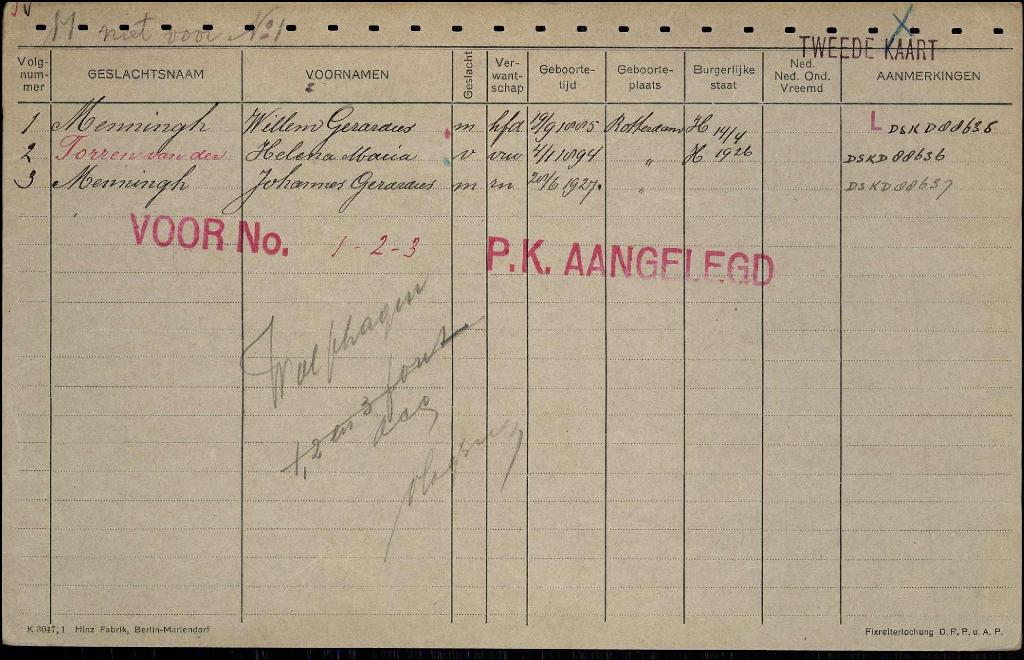 M niet voor No 1
TWEEDE KAART
Volg-nummer GESLACHTSNAAM VOORNAMEN Geslacht Ver-want-schap Geboorte-tijd Geboorte-plaats Burgerlijke staat Ned. Ned. Ond. Vreemd AANMERKINGEN
1 Menningh Willem Gerardus m hfd 19/9 1885 Rotterdam H 14/4 L DSKD 88635
2 Torren van der Helena Maria v vrw 4/1 1894 " H 1926 DSKD 88636
3 Menningh Johannes Gerardus m zn 20/6 1927. " DSKD 88637
VOOR No. 1 - 2 - 3 P.K. AANGELEGD
1, 2 en 3 fout
K 3047,1 Hinz Fabrik, Berlin-Mariendorf Fixreiterlochung D. R. P. u. A. P.